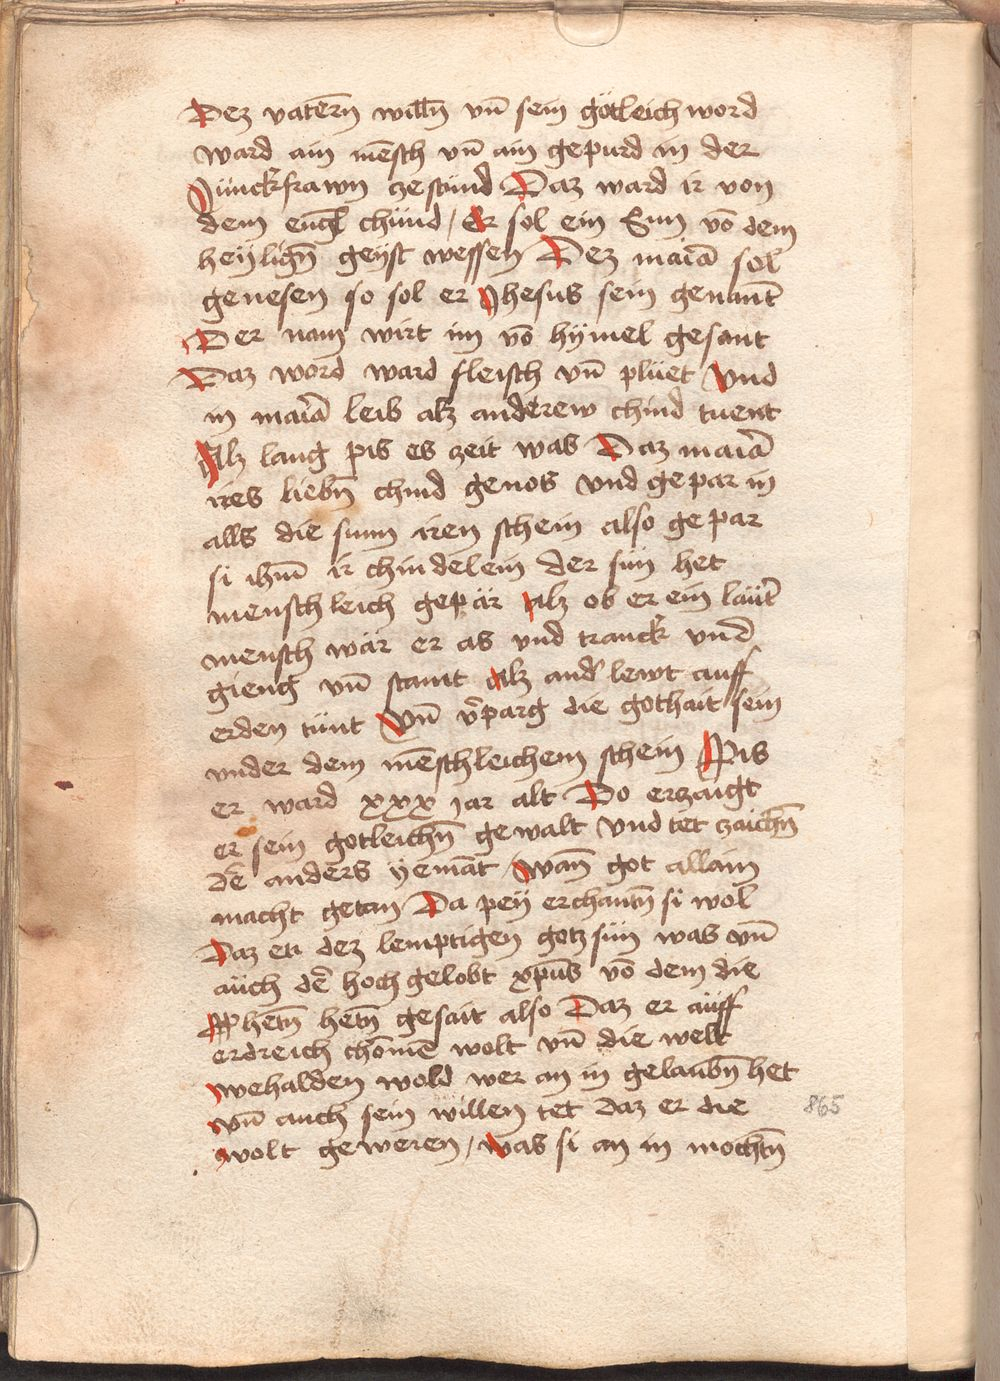 Dez vatern̄ willn̄ vn̄ sein götleich word
ward ain mēsch vn̄ ain gepurd in der
Jünckfrawn ze stund Daz ward ir von
dem engl chünd / Er sol ein Sun vō dem
heylign̄ geyst wessen Dez maiā sol
genesen so sol er Jhesus sein genant
Der nam wirt im vō hymel gesant
Daz word ward fleisch vn̄ plüet Vnd
in maiā leib alz anderew chind tuent
Alz lang pis es zeit was Daz maiā
ires liebn̄ chind genos Vnd gepar in
alls die sunn iren schein also gepar
si ihm̄ ir chindelein der sün het
menschleich gepär alz ob er ein laut̄
mensch wär er as vnd tranck vnd
gieng vn̄ stamt Alz and̄ lewt auff
erden tünt Vn̄ v̄parg die gothait sein
vnder dem mēschleichem schein Pis
er ward xxx jar alt Do erzaigt
er sein gotleichn̄ gewalt Vnd tet zaichn̄
dē anders yemāt / wan̄ got allain
macht getan Da pey erchantn̄ si wol
Daz er dez lemptigen gotz sün was vn̄
auch dē hoch gelobt xp̄us vō dem die
Pphetn̄ hetn̄ gesait also Daz er auff
erdreich chōmē wolt vn̄ die welt
wehalden wold wer an in gelaubn̄ het
vn̄ auch sein willen tet daz er die
wolt geweren / was si an in mochtn̄
865